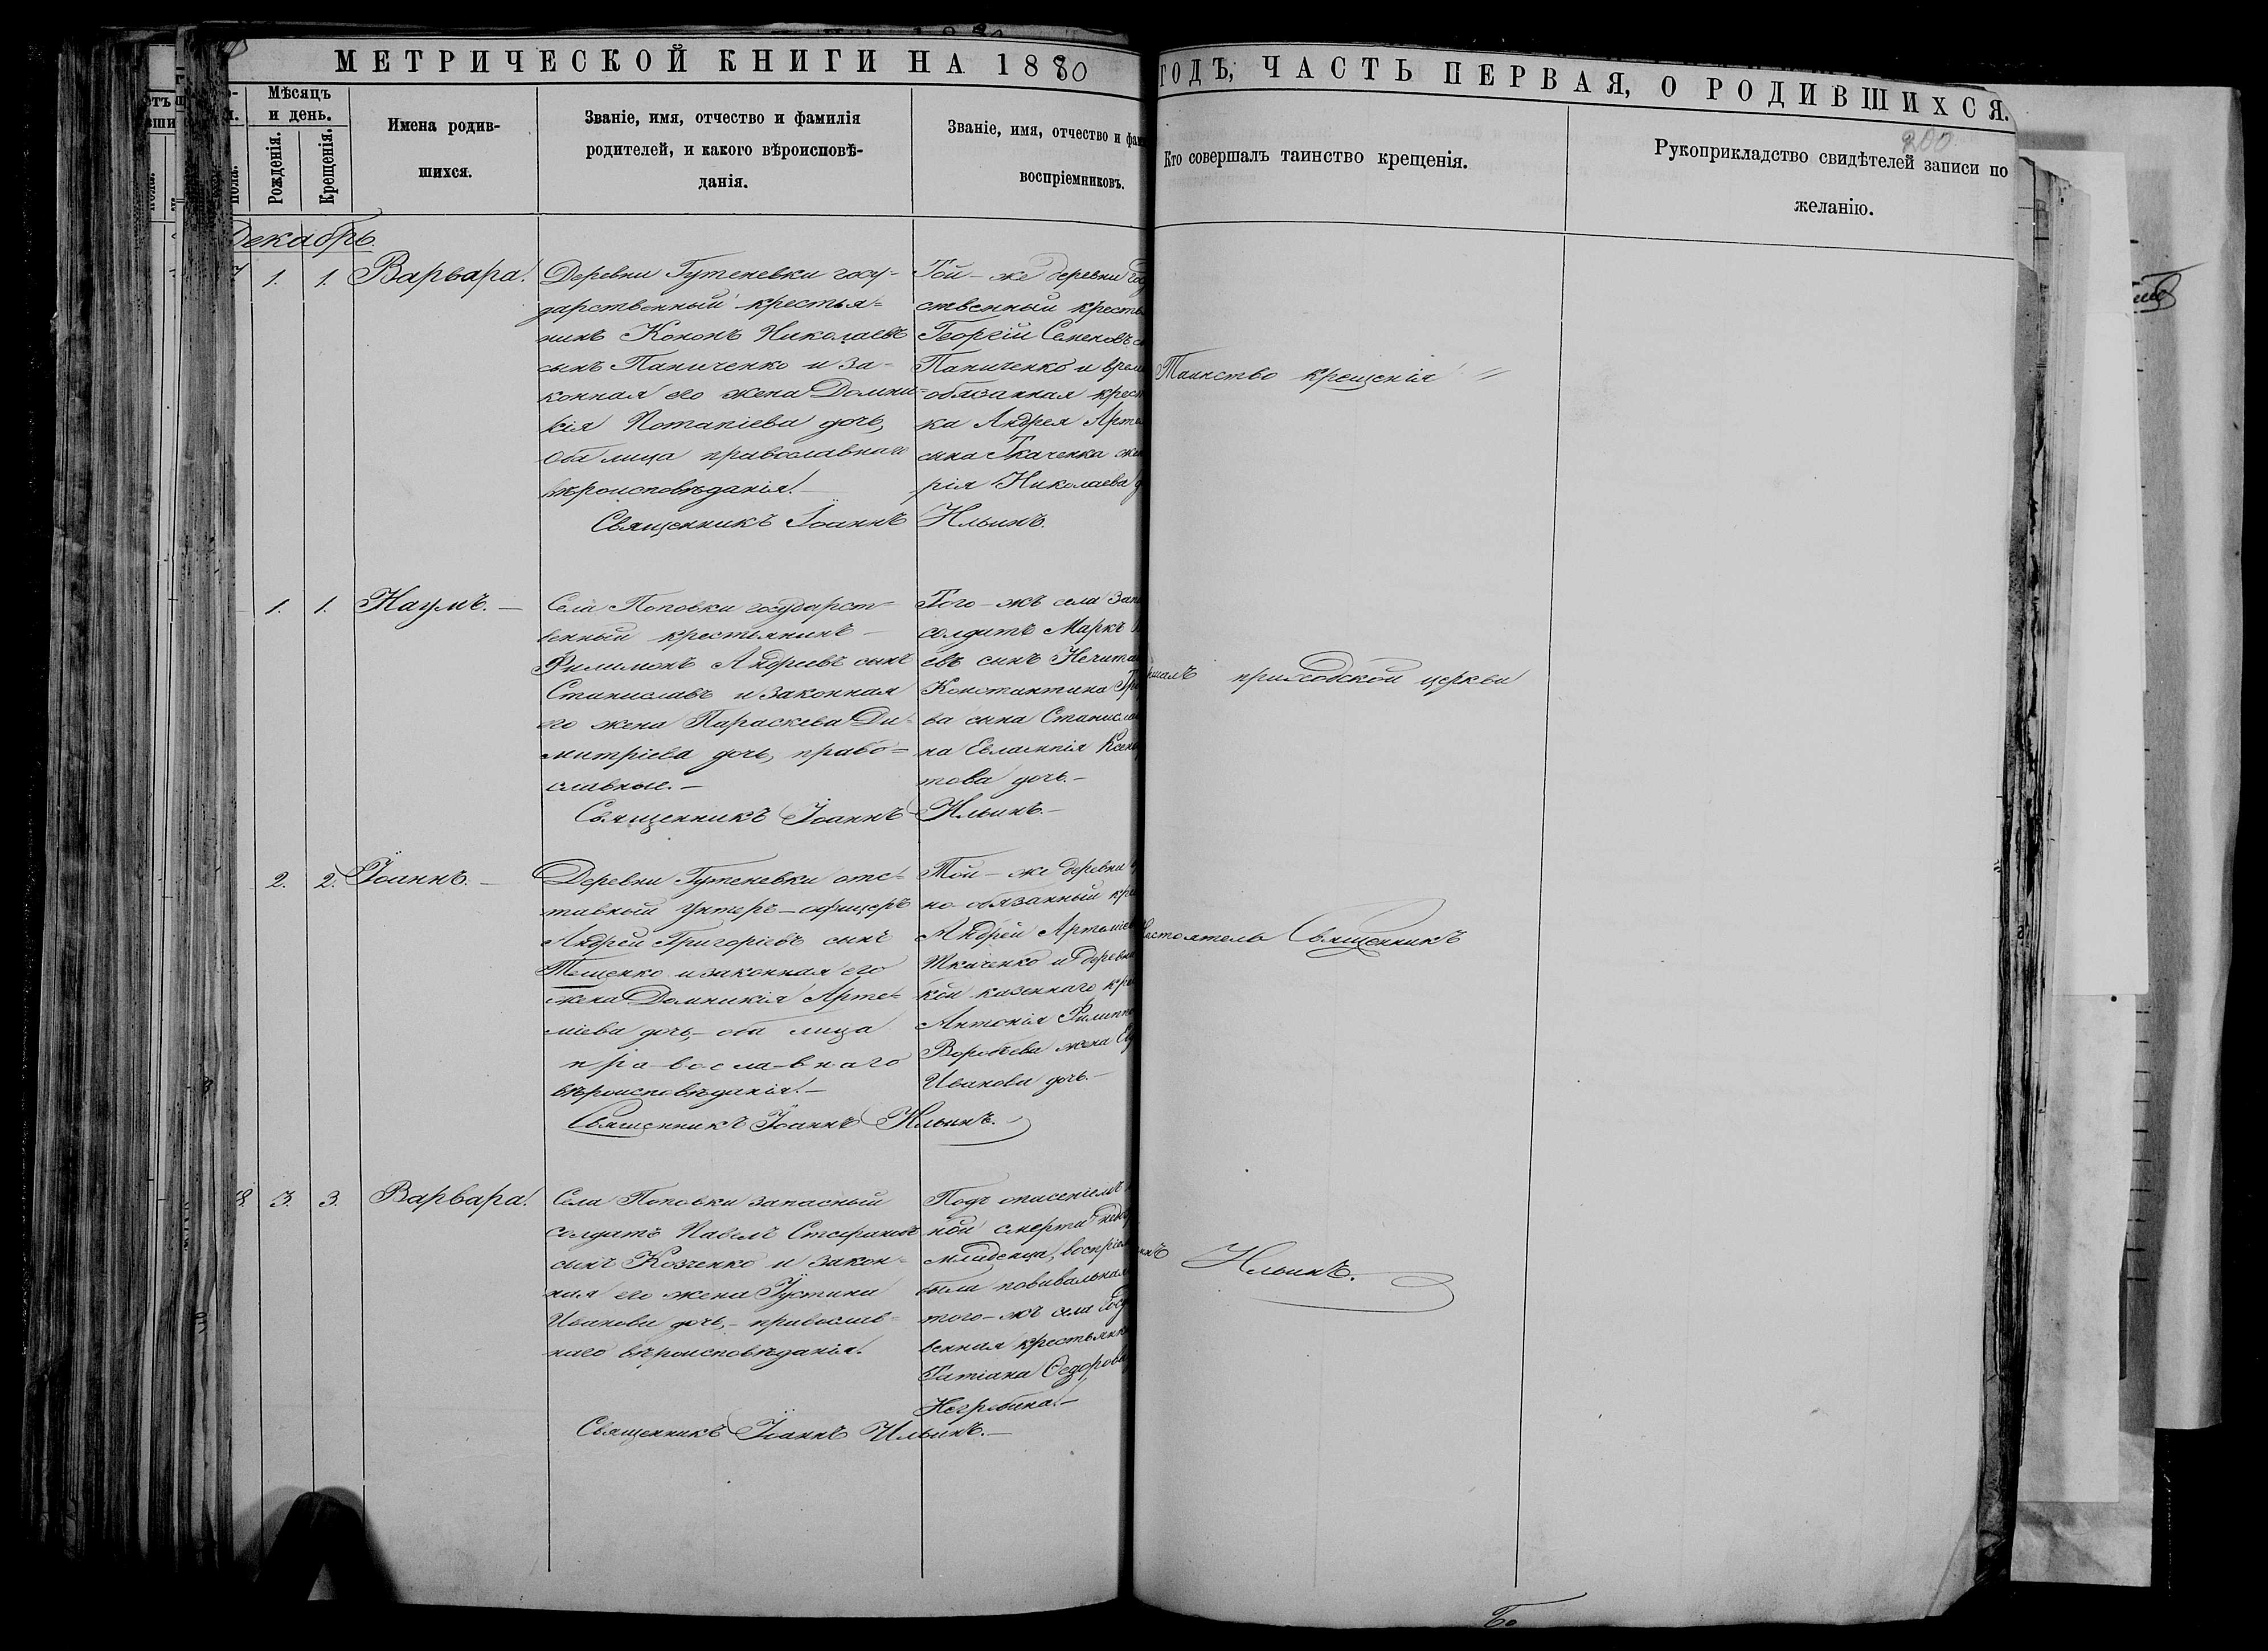 МЕТРИЧЕСКОЙ КНИГИ НА 1880
ГОДЪ, ЧАСТЬ ПЕРВАЯ, О РОДИВШИХСЯ.
200
Мѣсяцъ
и день.
Рожденія.
Крещенія.
Имена родив-
шихся.
Званіе, имя, отчество и фамилія
родителей, и какого вѣроисповѣ-
данія.
Званіе, имя, отчество и фам
воспріемниковъ.
Кто совершалъ таинство крещенія.
Рукоприкладство свидѣтелей записи по
желанію.
Декабрь.
1. 1. Варвара.
Деревни Гутеневки госу-
дарственный крестья-
нинъ Кононъ Николаевъ
сынъ Паниченко и за-
конная его жена Домни-
кія Потапіева дочь,
оба лица православнаго
вѣроисповѣданія.
Той-же деревни гос
ственный кресть
Георгій Семеновъ с
Паниченко и врем
обязанная крест
ка Андрея Арте
сына Ткаченка жен
рія Николаева д
Священникъ Іоаннъ Ильинъ.
1. 1. Наумъ.
Села Поповки государст-
венный крестьянинъ
Филимонъ Андреевъ сынъ
Станиславъ и законная
его жена Параскева Ди-
митріева дочь, право-
славные.
Того-жъ села Зап
солдатъ Маркъ
евъ сынъ Нечита
Константина Гри
ва сына Станисла
на Евлампія Ксен
това дочь.
Священникъ Іоаннъ Ильинъ.
2. 2. Іоаннъ.
Деревни Гутеневки отс-
тавный унтеръ-офицеръ
Андрей Григоріевъ сынъ
Тещенко и законная его
жена Домникія Арте-
міева дочь, оба лица
православнаго
вѣроисповѣданія.
Той-же деревни
но-обязанный кре
Андрей Артеміев
Ткаченко и деревни
кои казеннаго кре
Антонія Филипп
Воробьева жена
Иванова дочь.
Священникъ Іоаннъ Ильинъ.
3. 3. Варвара.
Села Поповки запасный
солдатъ Павелъ Стефановъ
сынъ Козченко и закон-
ная его жена Іустина
Иванова дочь, православ-
наго вѣроисповѣданія.
Подъ опасеніемъ
ной смерти
младенца, воспріем
была повивальная
того-жъ села Гос
венная крестьянк
Татіана Ѳедоров
Негребина.
Священникъ Іоаннъ Ильинъ.
Таинство крещенія
шалъ приходской церкви
Настоятель Священникъ
ннъ Ильинъ.